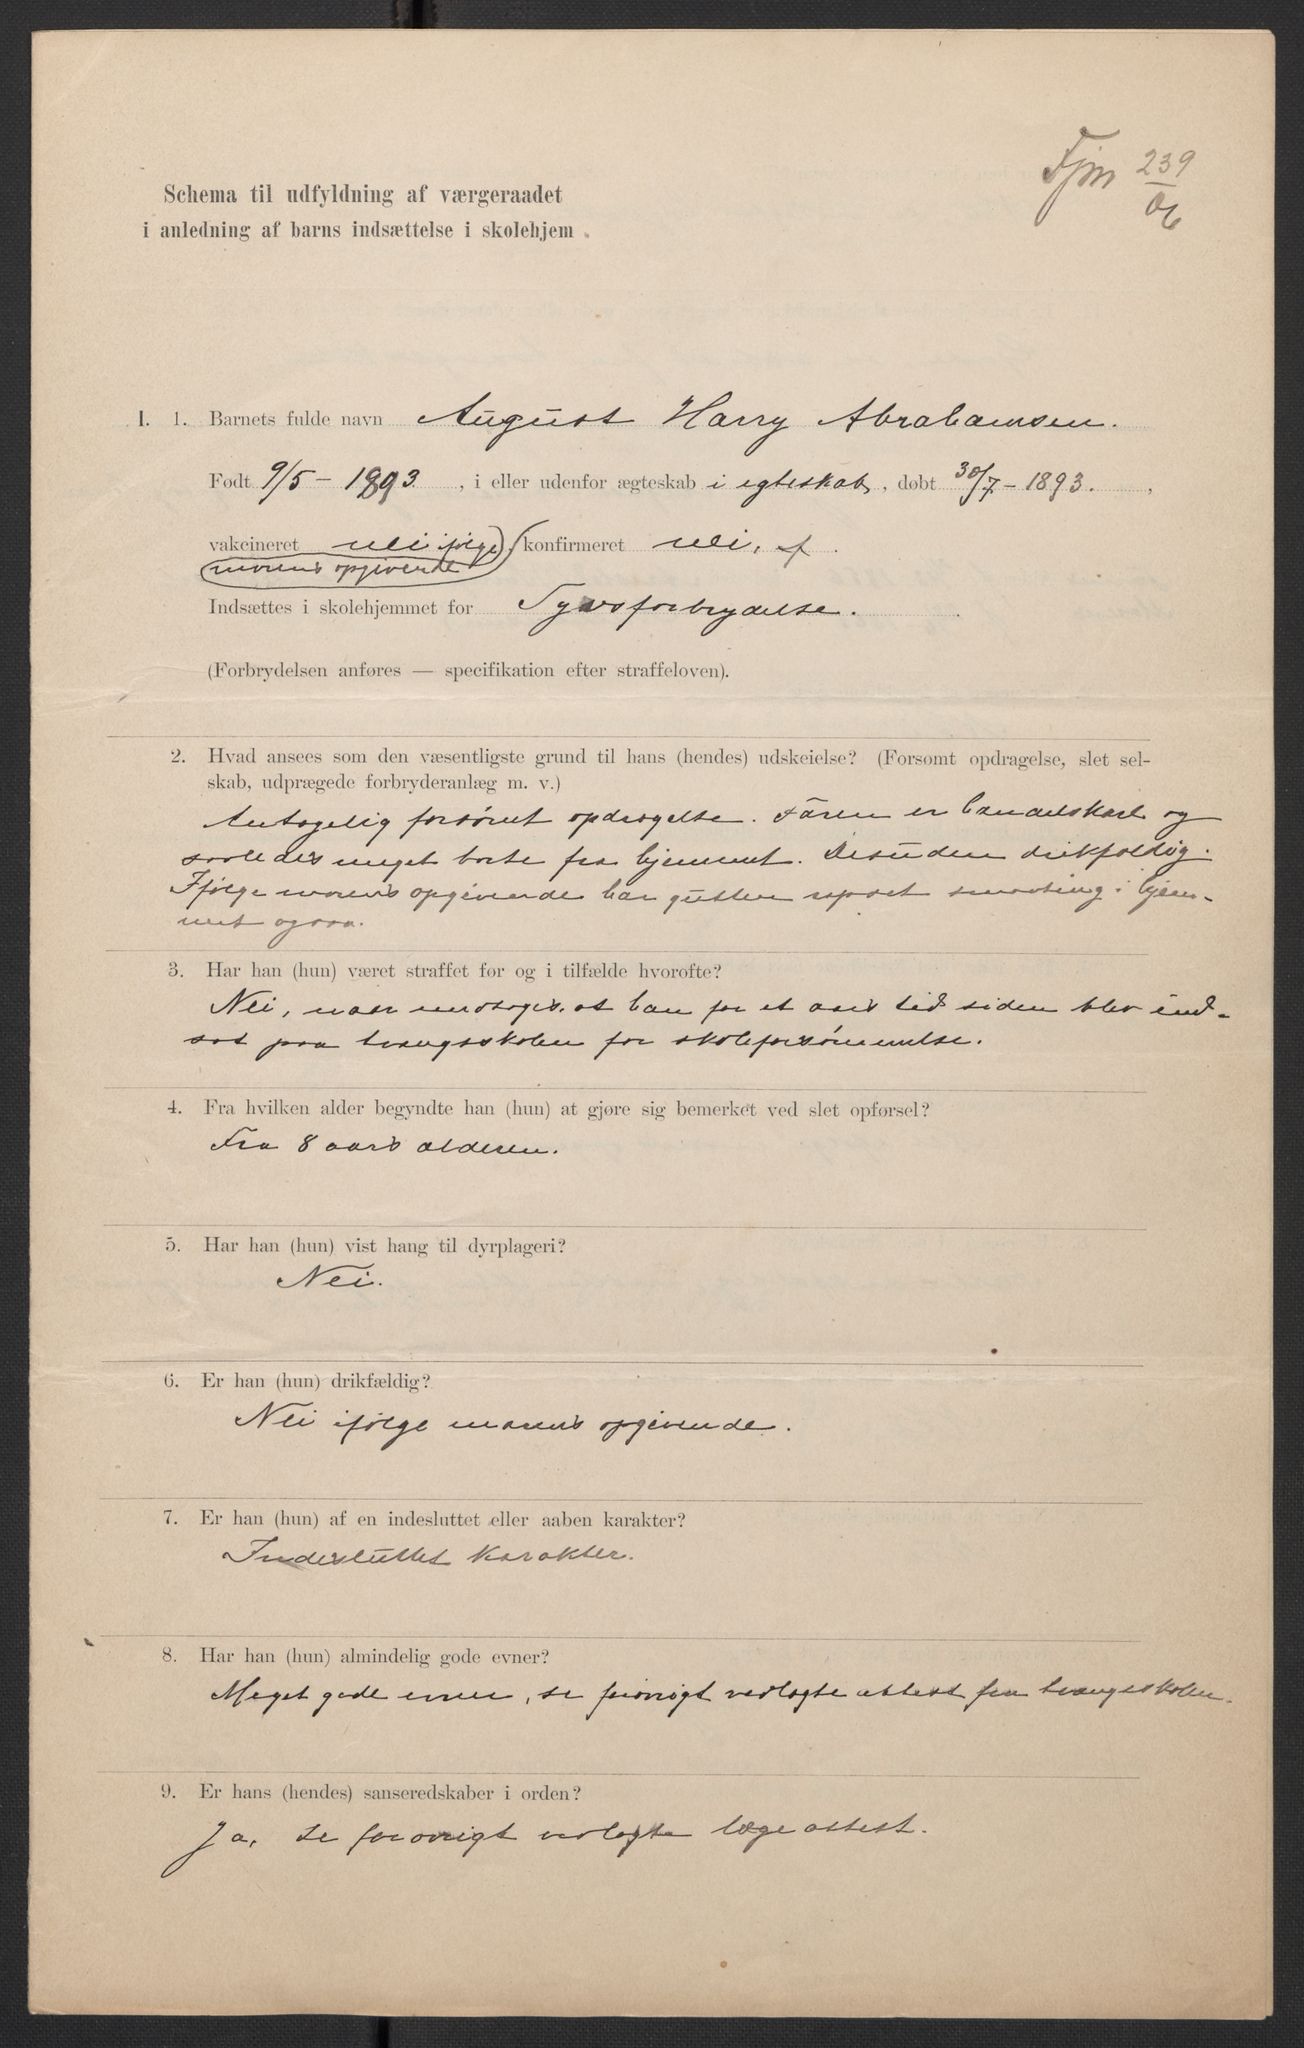 Fjm 239/06
Schema til udfyldning af værgeraadet
i anledning af barns indsættelse i skolehjem.
I. 1. Barnets fulde navn August Harry Abrahamsen.
Født 9/5 - 1893, i eller udenfor ægteskab i egteskab, døbt 30/7 - 1893.,
vakcineret nei ifølge konfirmeret nei.
morens opgivende
Indsættes i skolehjemmet for Tyvsforbrydelse.
(Forbrydelsen anføres — specifikation efter straffeloven).
2. Hvad ansees som den væsentligste grund til hans (hendes) udskeielse? (Forsømt opdragelse, slet sel-
skab, udprægede forbryderanlæg m. v.)
Antagelig forsømt opdragelse. Faren er handelskarl og
saaledes meget borte fra hjemmet. Desuden drikfældig.
Ifølge morens opgivende har gutten rapset smaating i hjem-
met ogsaa.
3. Har han (hun) været straffet før og i tilfælde hvorofte?
Nei, naar undtages at han for et aars tid siden blev ind-
sat paa tvangsskolen for skoleforsømmelse.
4. Fra hvilken alder begyndte han (hun) at gjøre sig bemerket ved slet opførsel?
Fra 8 aars alderen.
5. Har han (hun) vist hang til dyrplageri?
Nei.
6. Er han (hun) drikfældig?
Nei ifølge morens opgivende.
7. Er han (hun) af en indesluttet eller aaben karakter?
Indesluttet karakter.
8. Har han (hun) almindelig gode evner?
Meget gode evner, se forøvrigt vedlagte attest fra tvangsskolen.
9. Er hans (hendes) sanseredskaber i orden?
Ja, se forøvrigt vedlagte lægeattest.